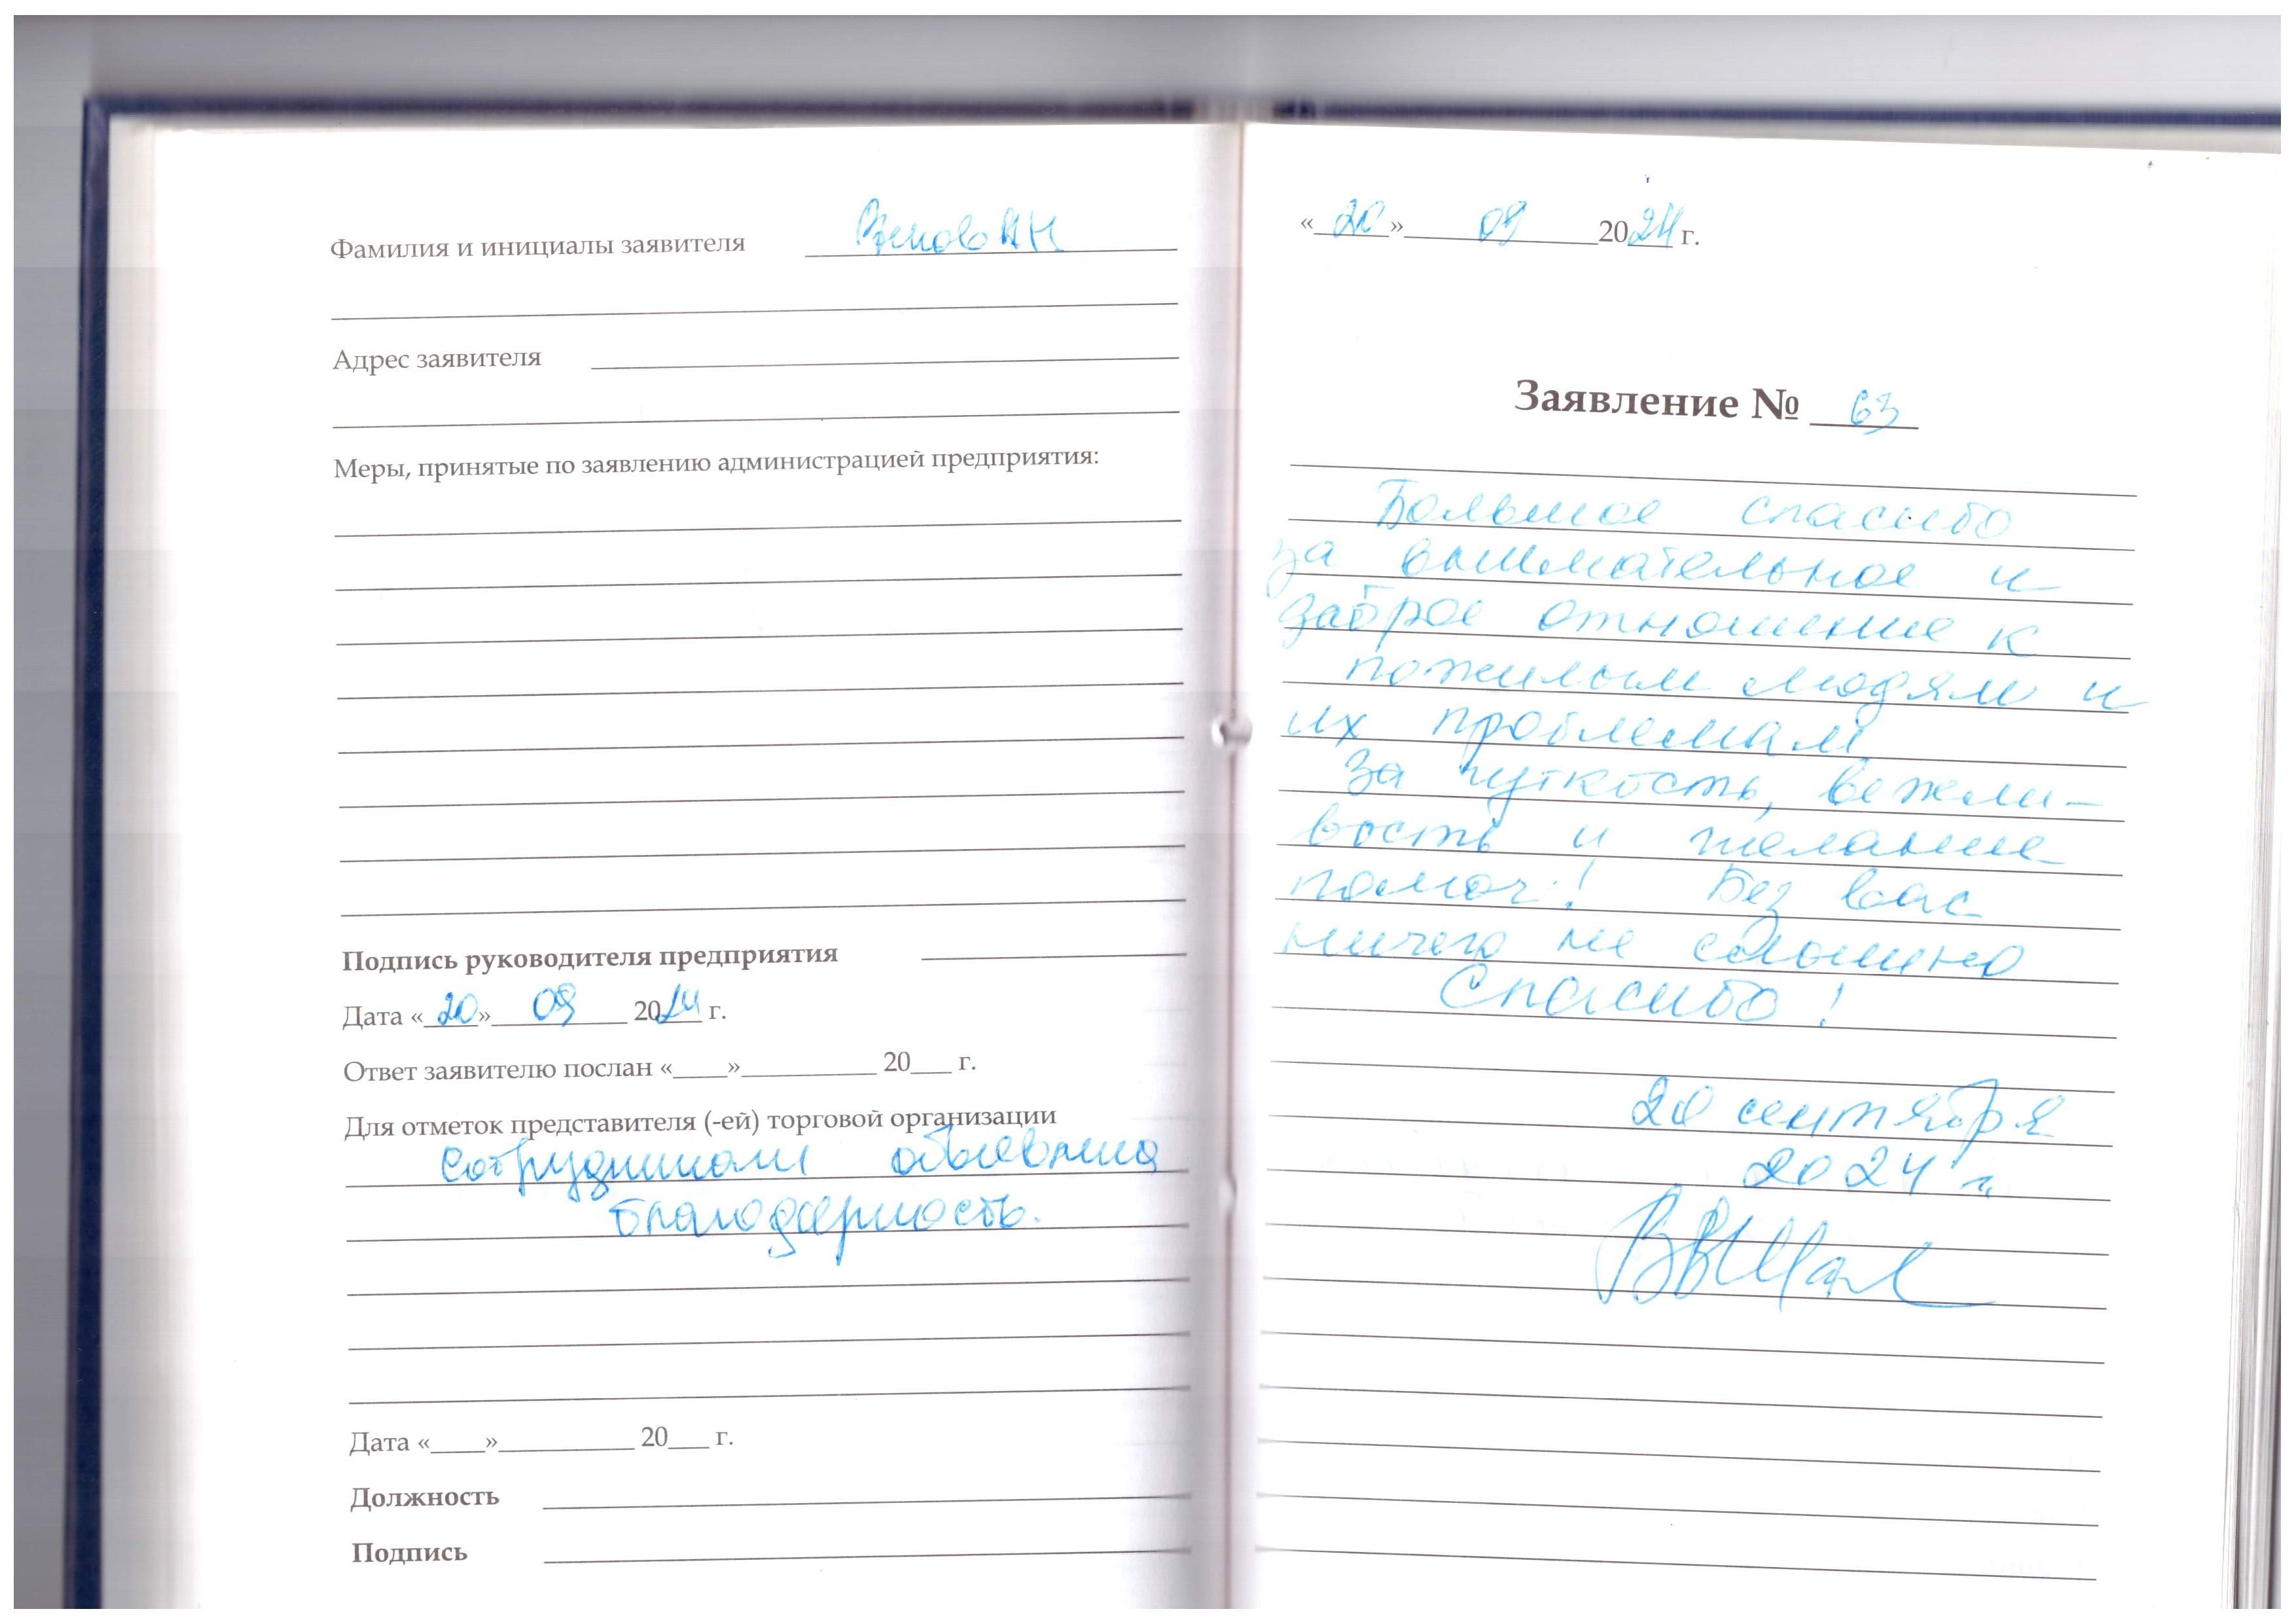 Фамилия и инициалы заявителя
Адрес заявителя
Меры, принятые по заявлению администрацией предприятия:
Подпись руководителя предприятия
Дата «20» 09 2024 г.
Ответ заявителю послан «____»__________ 20___ г.
Для отметок представителя (-ей) торговой организации
Сотрудникам объявлена
благодарность.
Дата «____»__________ 20___ г.
Должность
Подпись
«20» 09 2024 г.
Заявление № 63
Большое спасибо
за внимательное и
доброе отношение к
пожилым людям и
их проблемам
За чуткость, вежли-
вость и желание
помоч! Без вас
ничего не
Спасибо!
20 сентября
2024 г.